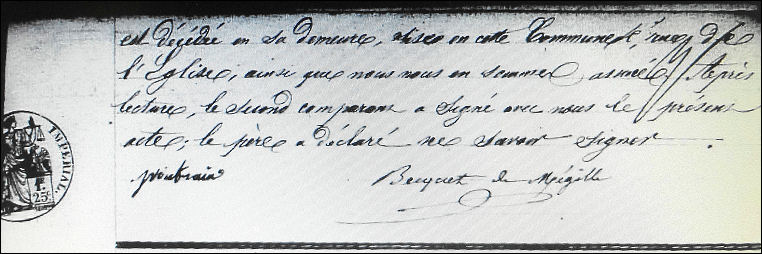 est décédé en sa demeure, sise en cette Commune, rue de
l'Eglise, ainsi que nous nous en sommes assuré. Après
lecture, le second comparant a signé avec nous le présent
acte; le père a déclaré ne savoir signer.
Becquet de Mégille
IMPERIAL.
1 F.
25c